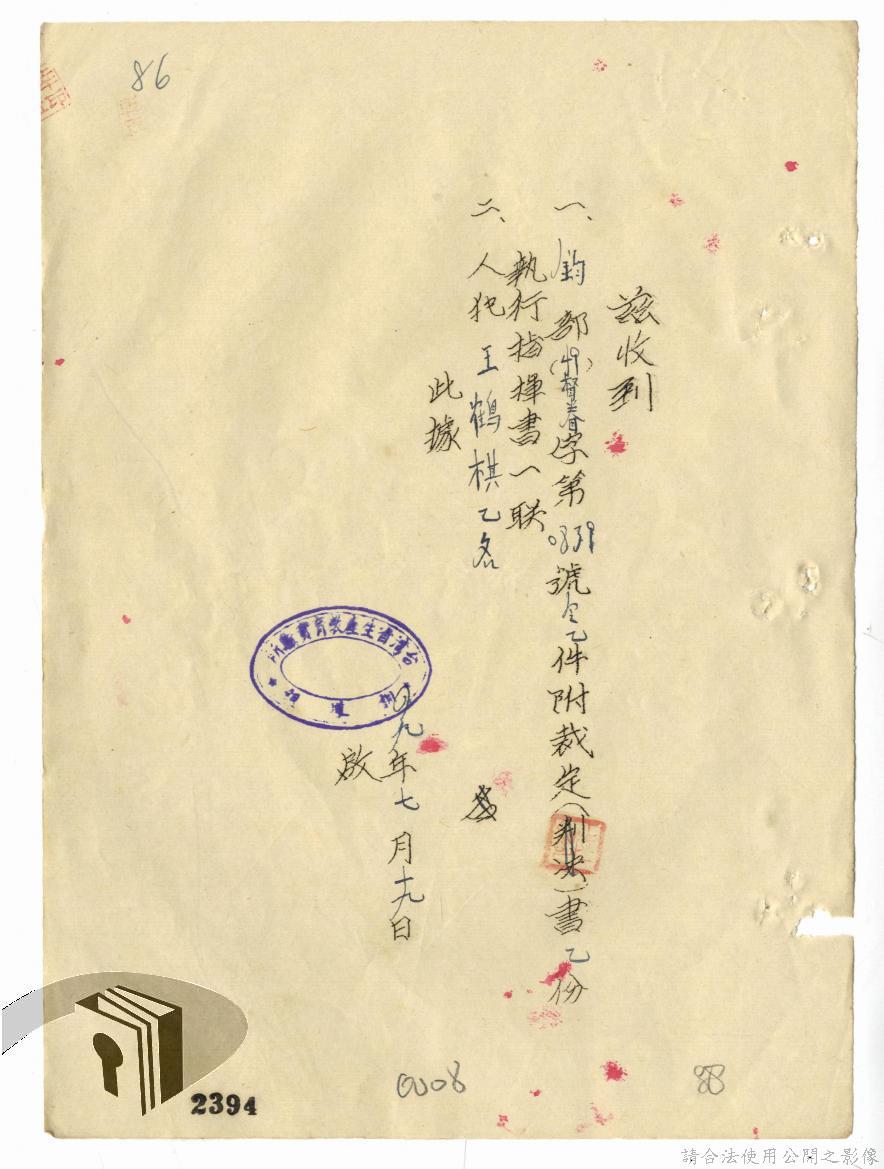 86
茲收到
一、鈞部(49)督春字第0839號令乙件附裁定(判決)書乙份
執行指揮書一联
二、人犯王鶴棋乙名
此據
四九年七月十九日
啟
台灣省生產教育實驗所
2394
0008
88
請合法使用公開之影像